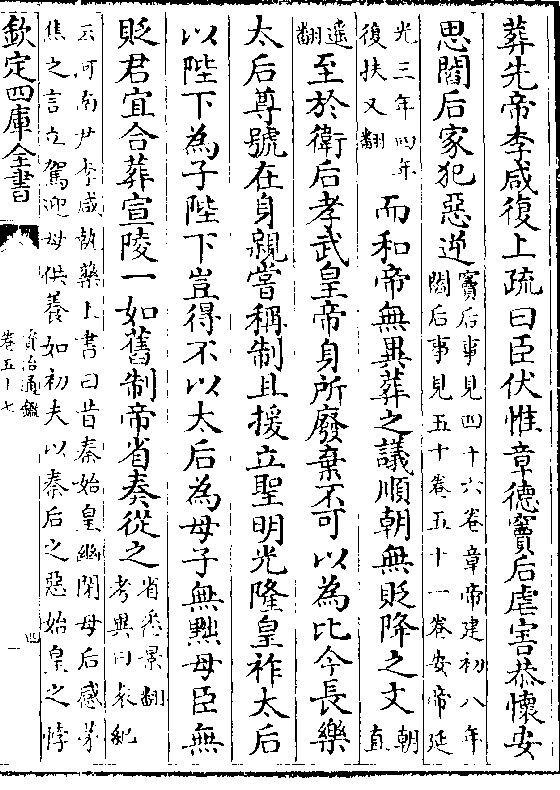 葬先帝李咸復上疏曰臣伏惟章德竇后虐害恭懷安
思閻后家犯惡逆竇后事見四十六卷章帝建初八年
閻后事見五十卷五十一卷安帝延
光三年四年
復扶又翻而和帝無異葬之議順朝無貶降之文朝
直
遥
翻至於衛后孝武皇帝身所廢棄不可以為比今長樂
太后尊號在身親嘗稱制且援立聖明光隆皇祚太后
以陛下為子陛下豈得不以太后為母子無黜母臣無
貶君宜合葬宣陵一如舊制帝省奏從之省悉景翻
考異曰袁紀
云河南尹李咸執藥上書曰昔秦始皇幽閉母后感茅
焦之言立駕迎母供養如初夫以秦后之惡始皇之悖
欽定四庫全書
資治通鑑
卷五十七
四